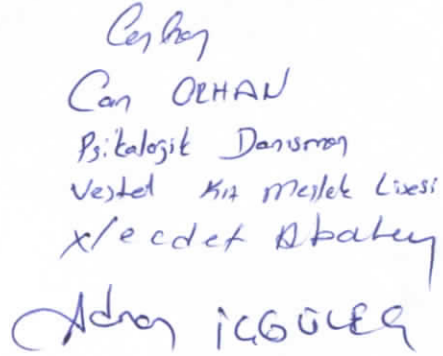 Can ORHAN
Psikolojik Danışman
Vestel Kız Meslek Lisesi
Necdet Abalıy
Adnan İÇGÜLEÇ